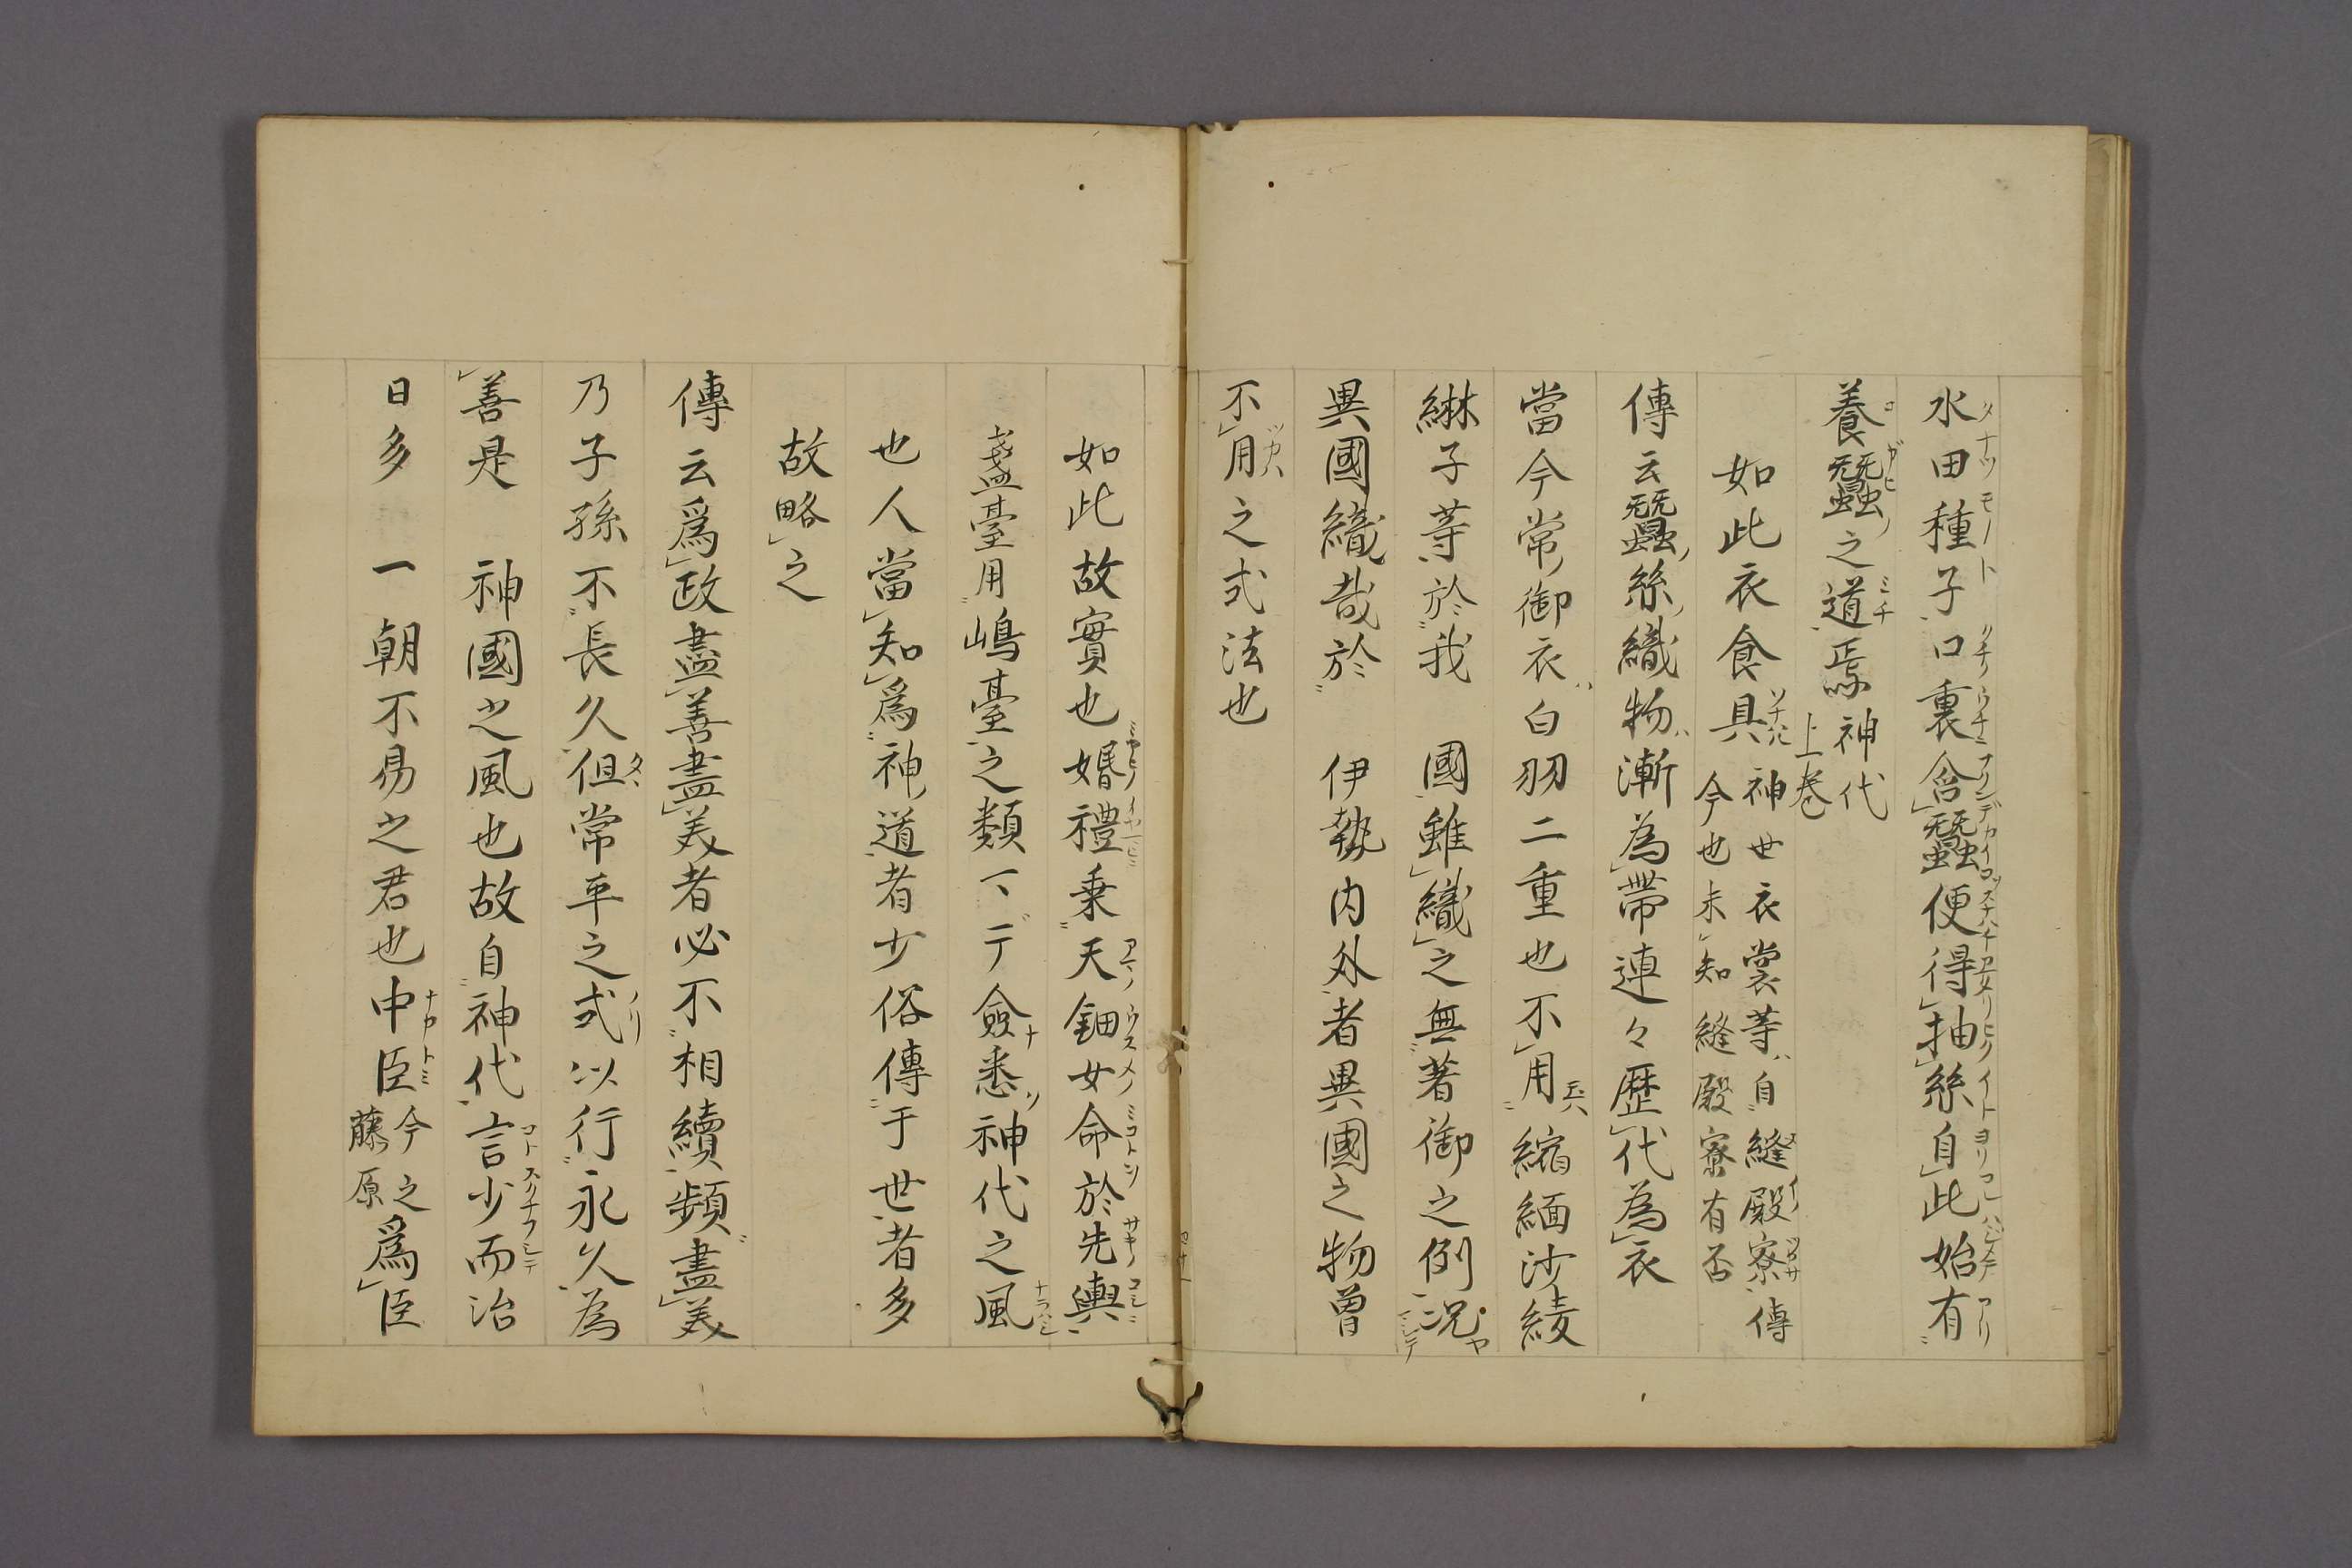 水田種子口裏含蠶便得抽絲自此始有
養蠶之道焉神代上巻
如此衣食具神世衣裳等自縫殿寮傳
今也未知縫殿寮有否
傳云蠶絲織物漸為帶連々歴代為衣
當今常御衣白羽二重也不用縮緬沙綾
綝子等於我 國雖織之無著御之例况
異國織哉於 伊勢内外者異國之物曽
不用之式法也
如此故實也婚禮乗天鈿女命於先輿
盞臺用嶋臺之類丶丁儉悉神代之風
也人當知爲神道者少俗傳于世者多
故略之
傳云爲政盡善盡美者必不相續頻盡美
乃子孫不長久但常平之式以行永久為
善是 神國之風也故自神代言少而治
日多 一朝不易之君也中臣今之藤原爲臣